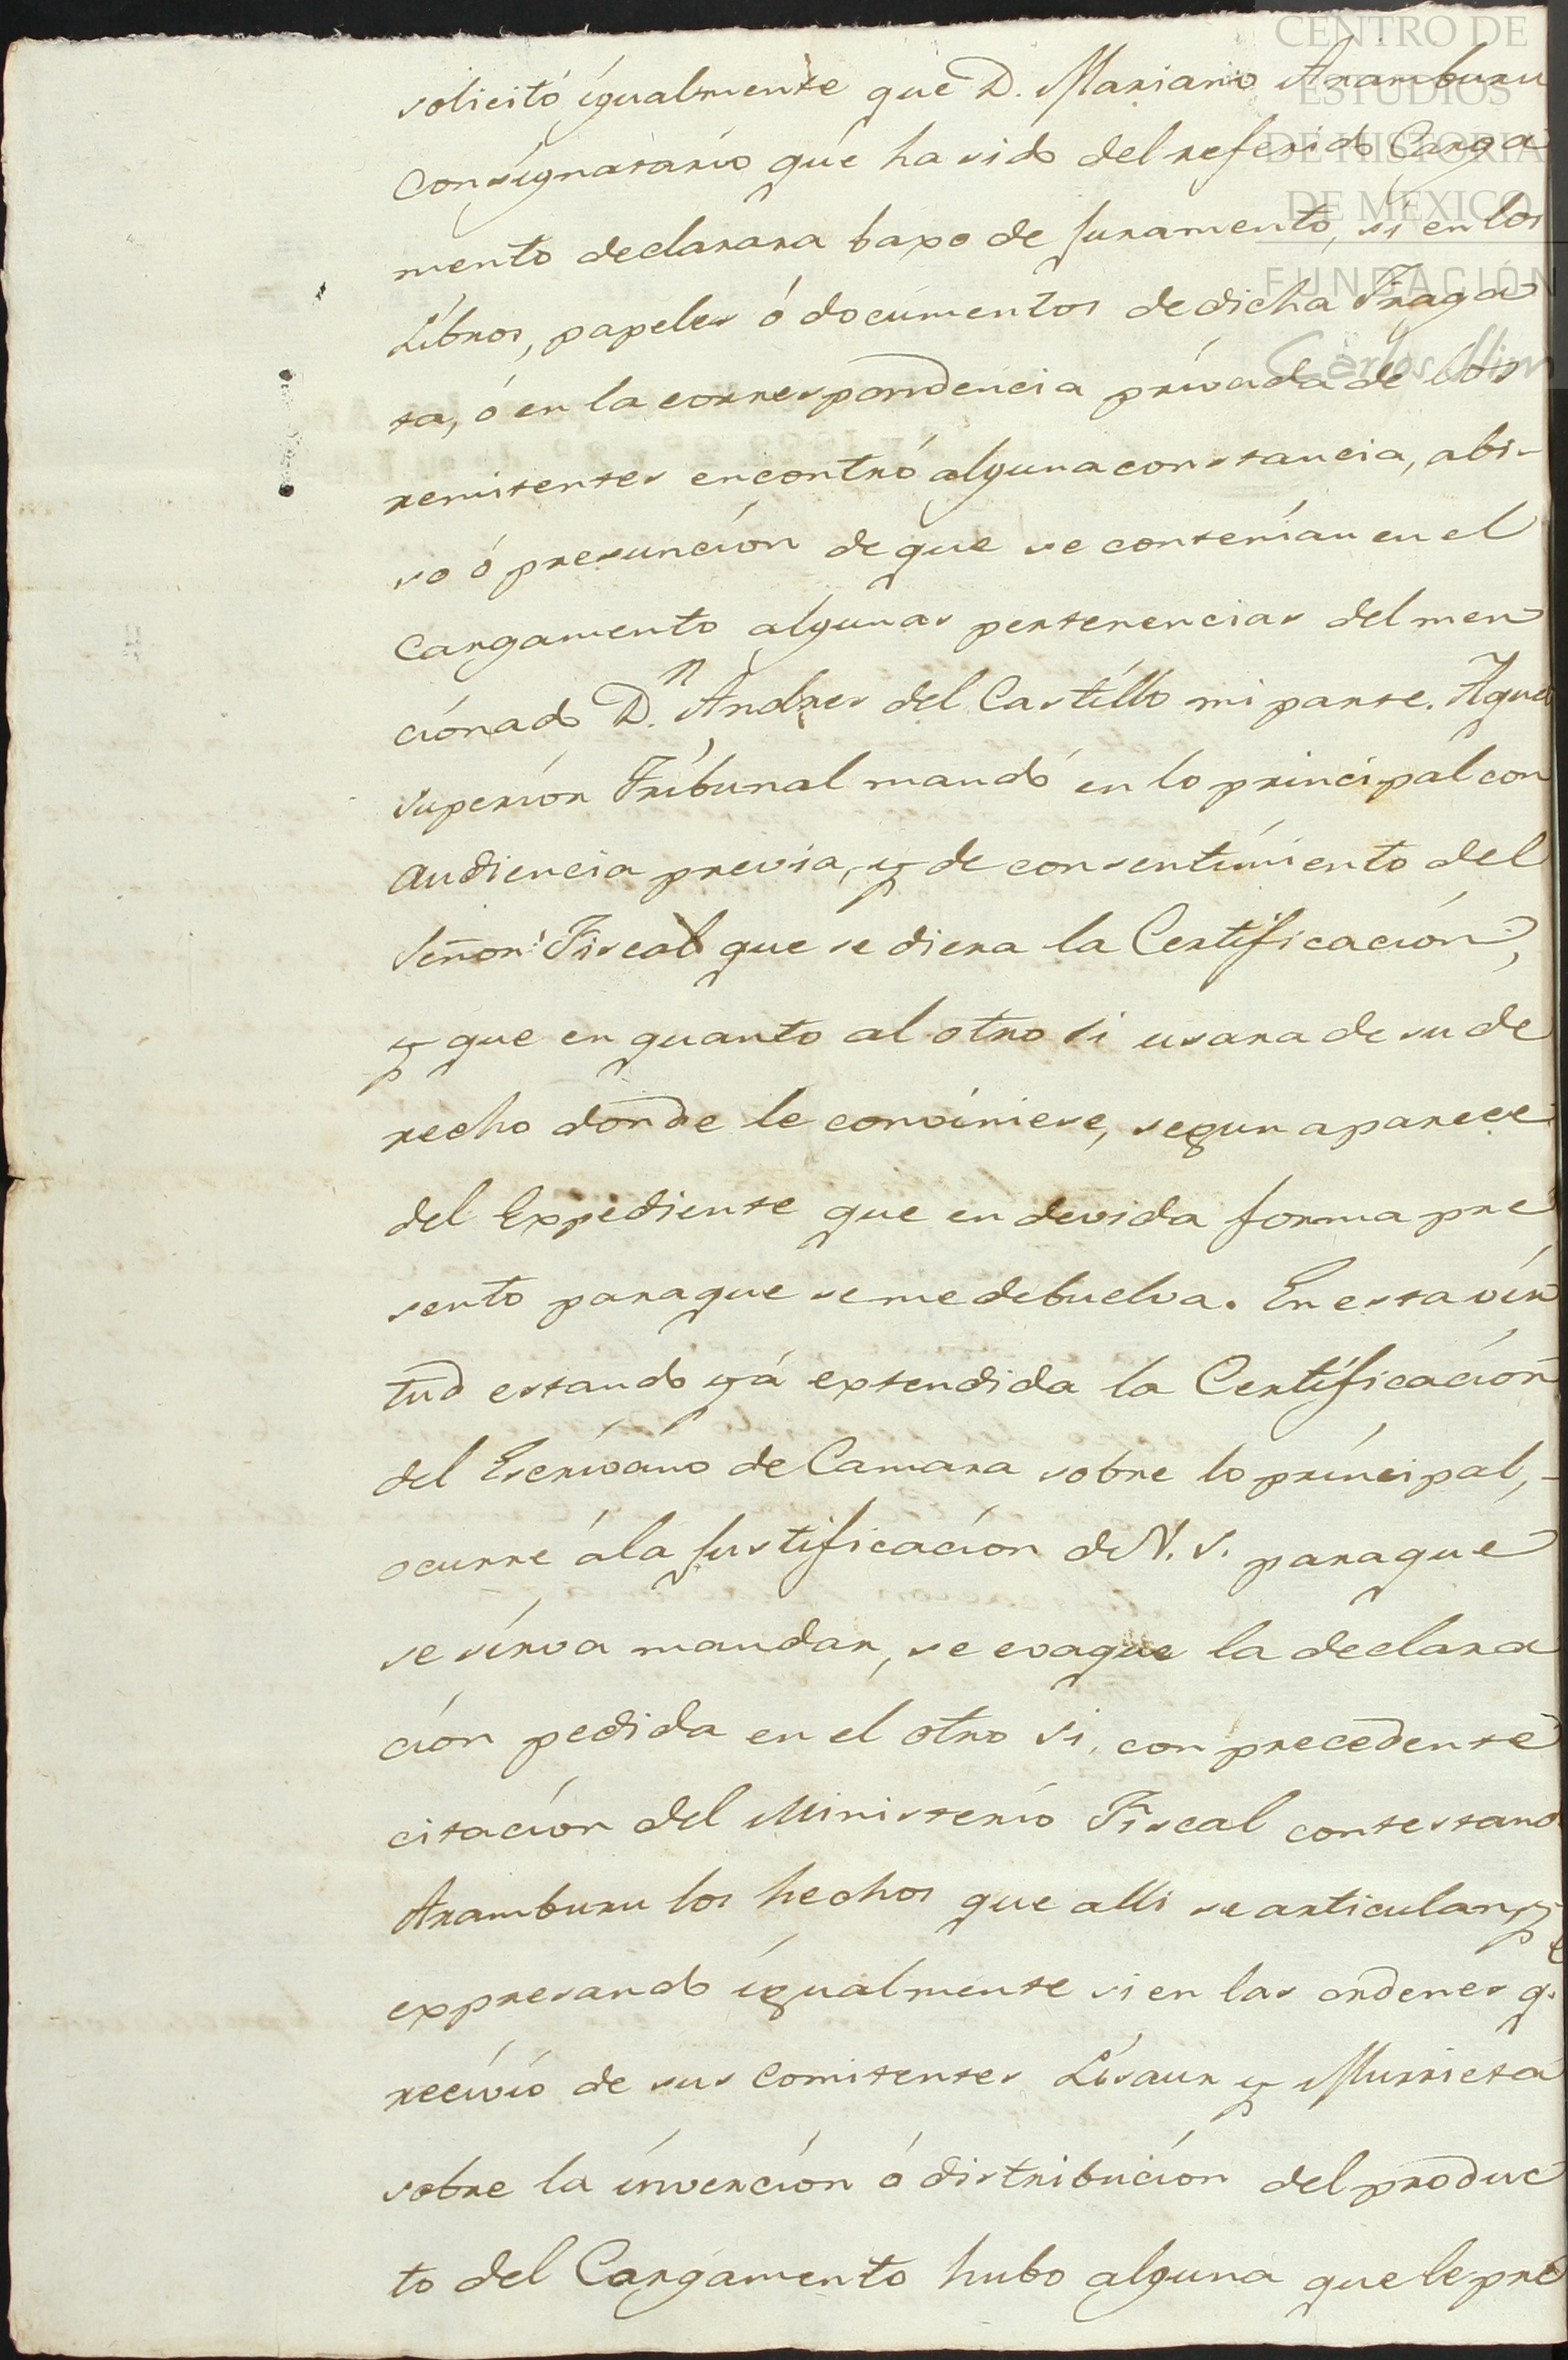 CENTRO DE
ESTUDIOS
DE HISTORIA
DE MEXICO
FUNDACIÓN
Carlos Slim
solicitó igualmente que D. Mariano Aramburu
Consignatario que ha sido del referido Carga
mento declarara baxo de juramento, si en los
Libros, papeles ó documentos de dicha Fraga
ta, ó en la correspondencia privada de los
remitentes encontró alguna constancia, abi-
so ó presunción de que se contenían en el
Cargamento algunas pertenencias del men
cionado D.n Andres del Castillo mi parte. Aquel
superior Tribunal mandó en lo principal con
audiencia previa, y de consentimiento del
Señor Fiscal que se diera la Certificación,
y que en quanto al otro si usara de su de
recho donde le conviniese, segun aparece
del Expediente que en devida forma pre
sento paraque se me debuelva. En esta vir
tud estando yá extendida la Certificación
del Escrivano de Camara sobre lo principal,-
ocurre á la justificación de V. S. paraque
se sirva mandar, se evaque la declara
ción pedida en el otro si, con precedente
citación del Ministerio Fiscal contestando
Aramburu los hechos que alli se articulan, y
expresando igualmente si en las ordenes q.e
recivió de sus Comitentes Lisaur y Murrieta
sobre la inverción ó distribución del produc
to del Cargamento hubo alguna que le pre